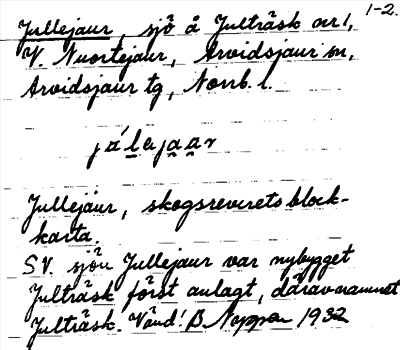 1-2.
Jullejaur, sjö å Julträsk nr 1,
V. Nuortejaur, Arvidsjaur sn,
Arvidsjaur tg, Norrb. l.
Jullejaur, skogsrevirets block-
karta.
SV. sjön Jullejaur var nybygget
Julträsk först anlagt, därav namnet
Julträsk. Vänd! 1932